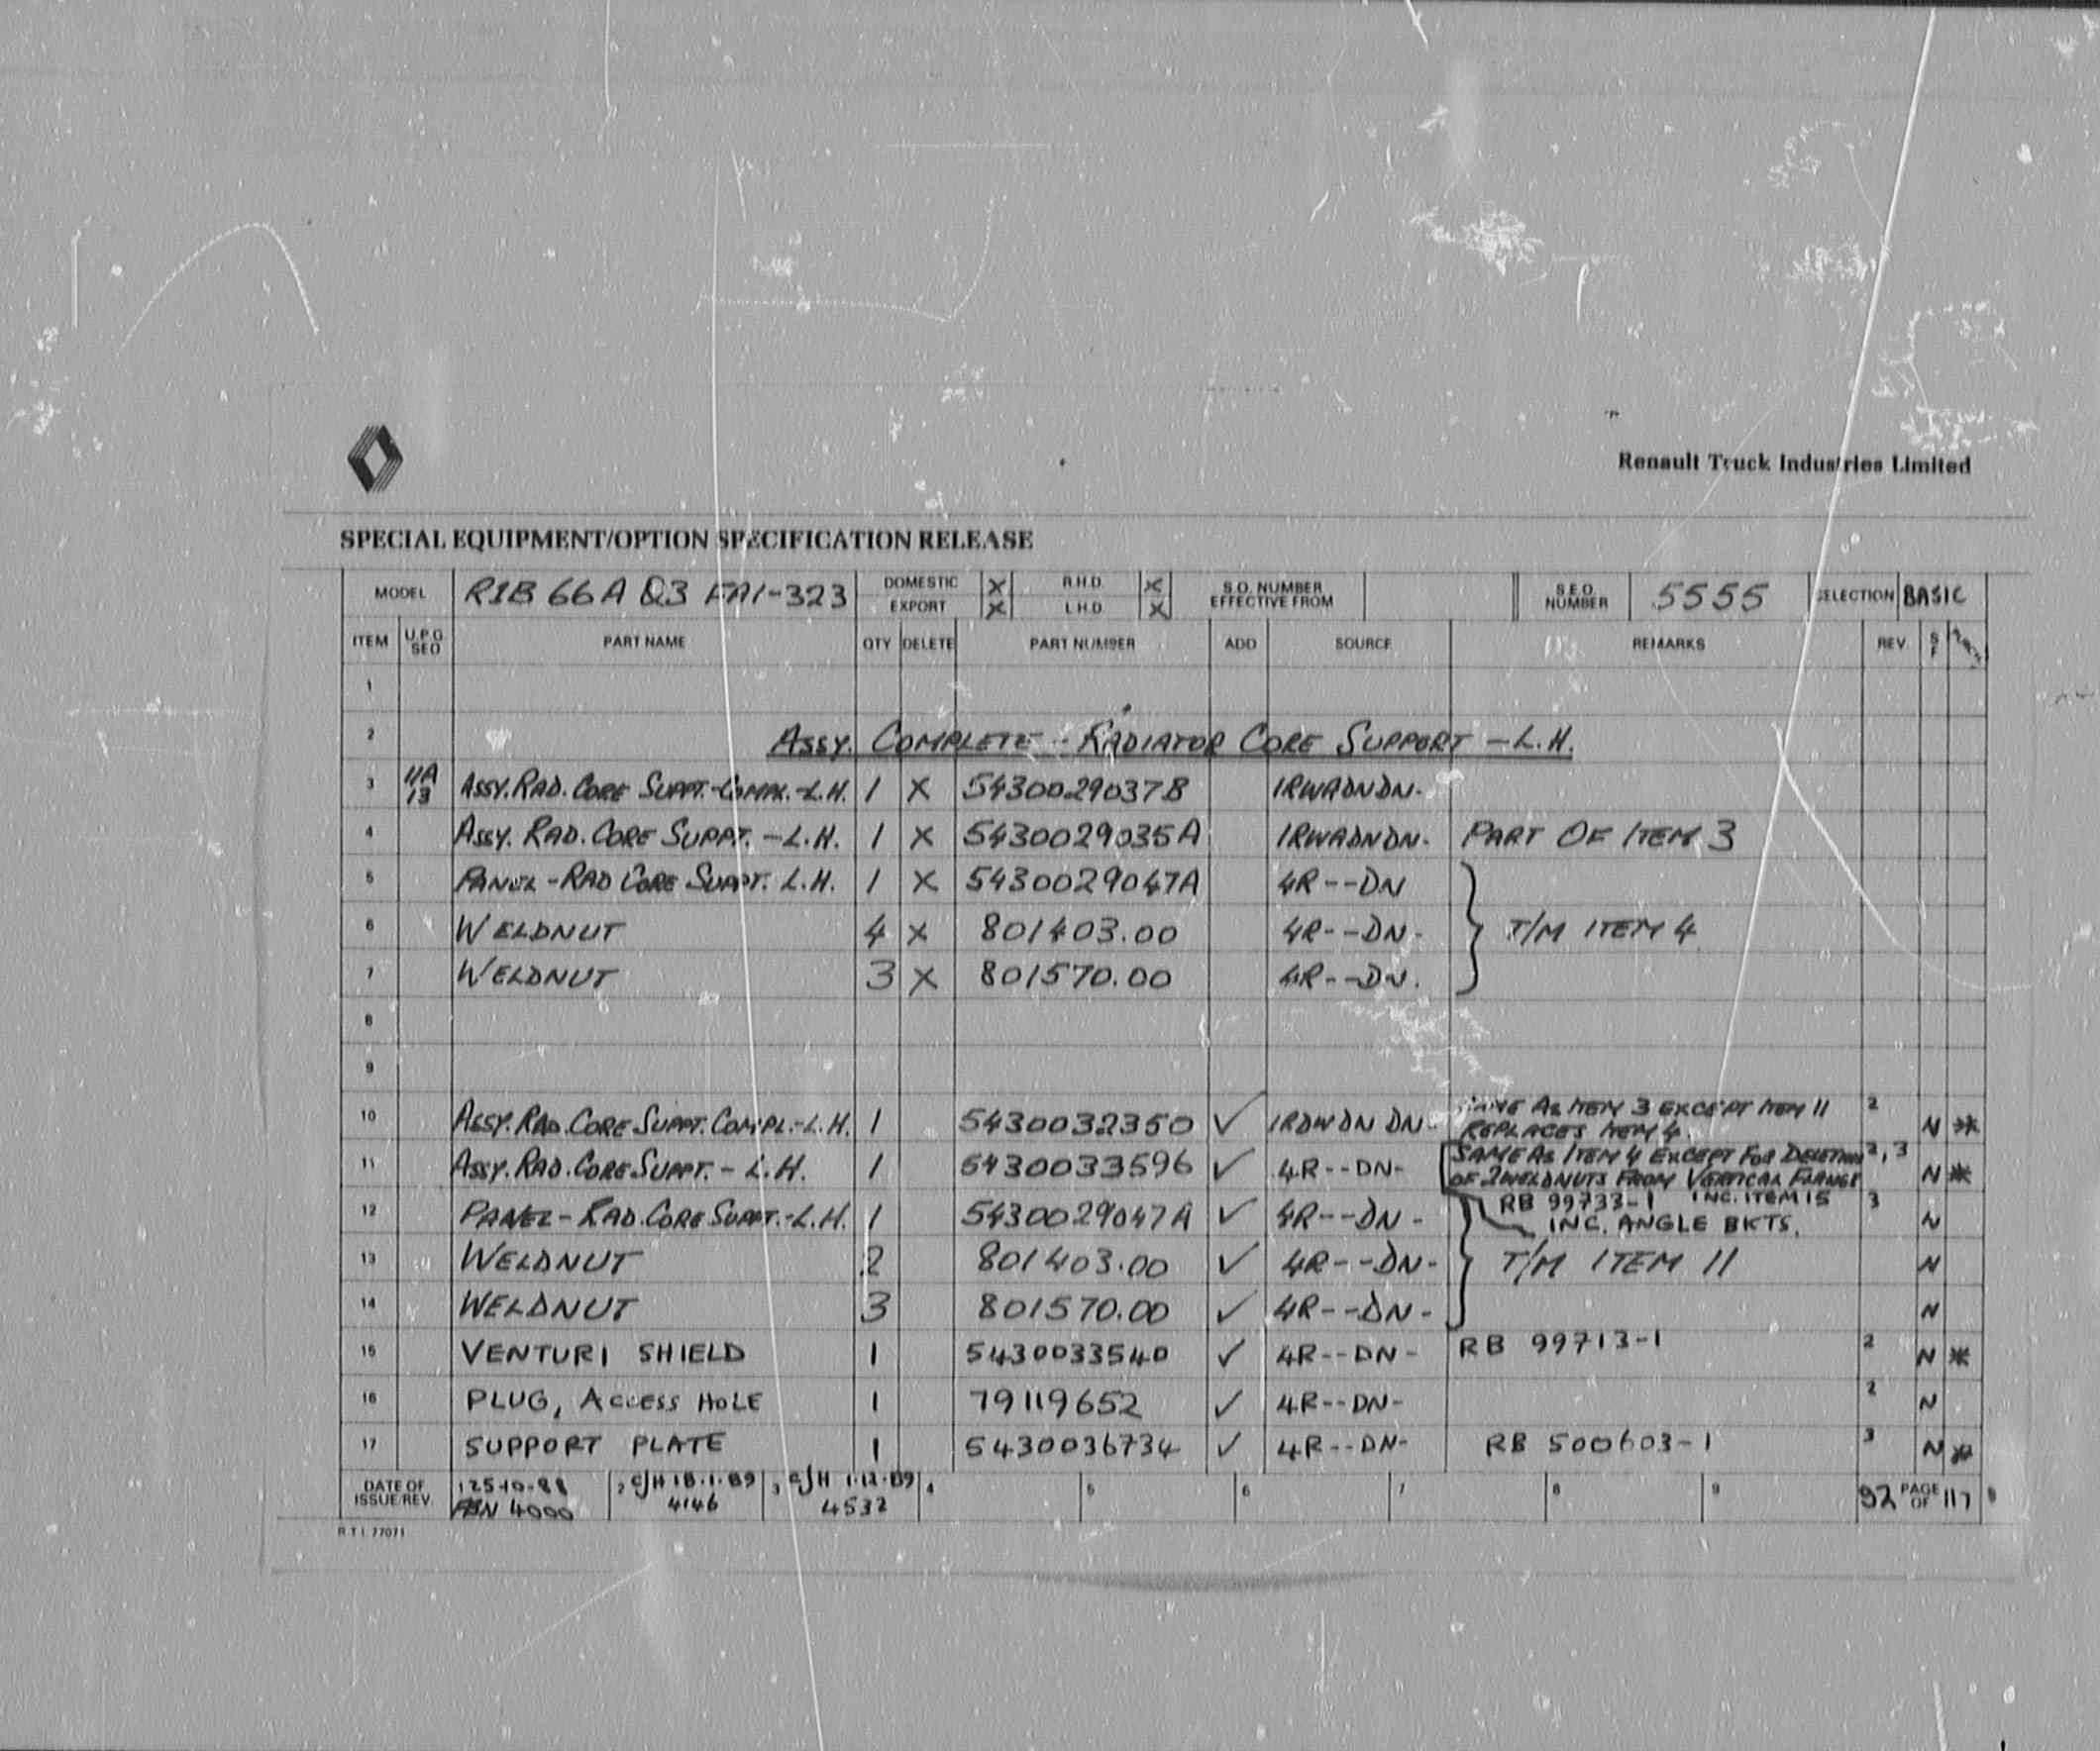 Renault Truck Industries Limited
SPECIAL EQUIPMENT/OPTION SPECIFICATION RELEASE
MODEL RIB 66A Q3 FA1-323 DOMESTIC X R.H.D. X S.O. NUMBER EFFECTIVE FROM S.E.O. NUMBER 5555 SELECTION BASIC
EXPORT X L.H.D. X
ITEM U.P.G. SEO PART NAME QTY DELETE PART NUMBER ADD SOURCE REMARKS REV. S F
1
2 ASSY. COMPLETE - RADIATOR CORE SUPPORT - L.H.
3 11A 13 ASSY. RAD. CORE SUPPT.-COMPL.-L.H. 1 X 5430029037B 1RWADNDN-
4 ASSY. RAD. CORE SUPPT. - L.H. 1 X 5430029035A 1RWADNDN- PART OF ITEM 3
5 PANEL - RAD CORE SUPPT. L.H. 1 X 5430029047A 4R--DN
6 WELDNUT 4 X 801403.00 4R--DN- T/M ITEM 4
7 WELDNUT 3 X 801570.00 4R--DN-
8
9
10 ASSY. RAD. CORE SUPPT. COMPL.-L.H. 1 5430032350 ✓ 1RDWDN DN- SAME AS ITEM 3 EXCEPT ITEM 11 2 N *
REPLACES ITEM 4
11 ASSY. RAD. CORE SUPPT. - L.H. 1 5430033596 ✓ 4R--DN- SAME AS ITEM 4 EXCEPT FOR DELETION 2,3 N *
OF 2 WELDNUTS FROM VERTICAL FLANGE
12 PANEL - RAD. CORE SUPPT.-L.H. 1 5430029047A ✓ 4R--DN- RB 99733-1 INC. ITEM 15 3 N
INC. ANGLE BKTS.
13 WELDNUT 2 801403.00 ✓ 4R--DN- T/M ITEM 11 N
14 WELDNUT 3 801570.00 ✓ 4R--DN- N
15 VENTURI SHIELD 1 5430033540 ✓ 4R--DN- RB 99713-1 2 N *
16 PLUG, ACCESS HOLE 1 79119652 ✓ 4R--DN- 2 N
17 SUPPORT PLATE 1 5430036734 ✓ 4R--DN- RB 500603-1 3 N *
DATE OF ISSUE/REV. 1 25-10-88 2 CJH 18.1.89 3 CJH 1.12.89 4 5 6 7 8 9 92 PAGE OF 117
4000 4146 4532
R.T.I. 77071